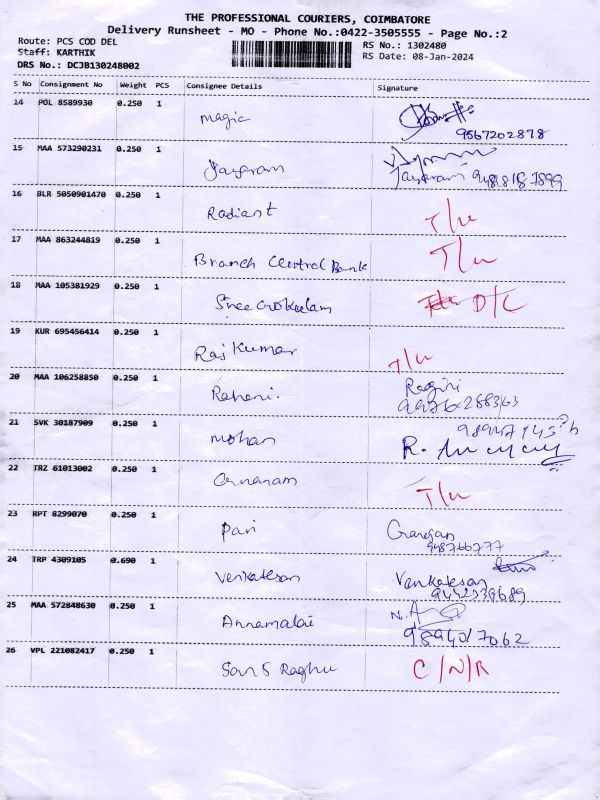 THE PROFESSIONAL COURIERS, COIMBATORE
Delivery Runsheet - MO - Phone No.:0422-3505555 - Page No.:2
Route: PCS COD DEL
Staff: KARTHIK
DRS No.: DCJB130248002
RS No.: 1302480
RS Date: 08-Jan-2024
S No Consignment No Weight PCS Consignee Details Signature
14 POL 8589930 0.250 1 Magic
9567202878
15 MAA 573290231 0.250 1 Jayaram Jayaram
16 BLR 5050901470 0.250 1 Radiant T/W
17 MAA 863244819 0.250 1 Branch Central Bank T/W
18 MAA 105381929 0.250 1 Sree Gokulam D/C
19 KUR 695456414 0.250 1 Raj Kumar T/W
20 MAA 106258850 0.250 1 Ragini
21 SVK 30187909 0.250 1 Mohan R.
22 TRZ 61013002 0.250 1 T/W
23 RPT 8299070 0.250 1 Pari
948766777
24 TRP 4309105 0.690 1 Venkatesan Venkatesan
9442339689
25 MAA 572848630 0.250 1 Annamalai
9894017062
26 VPL 221082417 0.250 1 Raghu C/N/R